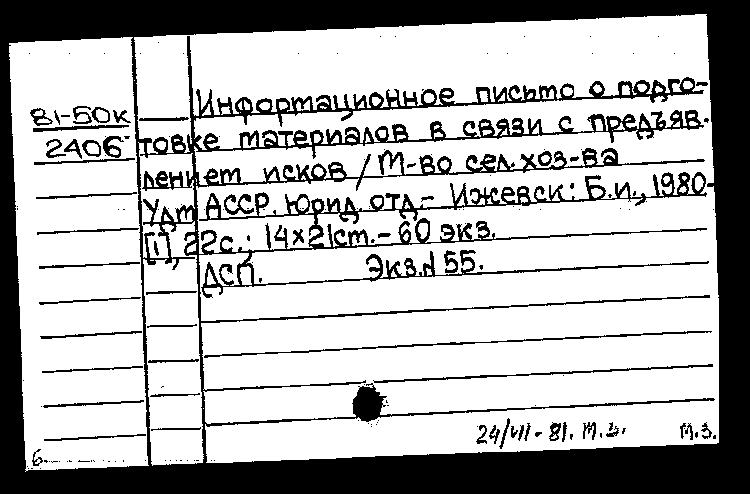 81-50к
2406
Информационное письмо о подго-
товке материалов в связи с предъяв-
лением исков / М-во сел. хоз-ва
Удм АССР. Юрид. отд.- Ижевск: Б.и., 1980-
[1], 22с.; 14×21см.- 60 экз.
ДСП. Экз.N 55.
24/VII-81. М.З. М.З.
6.